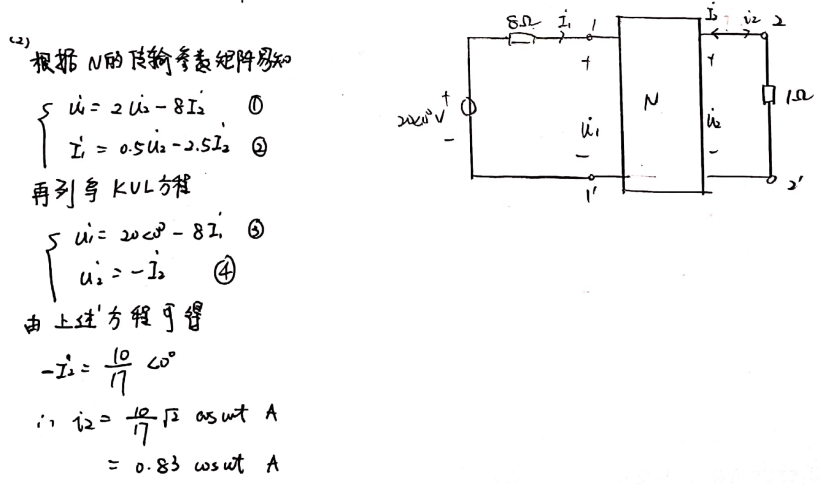 (2)
根据 N的传输参数矩阵易知
u̇₁ = 2u̇₂ - 8İ₂ ①
İ₁ = 0.5u̇₂ - 2.5İ₂ ②
再列写 KVL方程
u̇₁ = 20<0° - 8İ₁ ③
u̇₂ = -İ₂ ④
由上述方程可得
-İ₂ = 10/17 <0°
∴ i₂ = 10/17 √2 cos wt A
= 0.83 cos wt A
8Ω İ₁ 1 İ₂ ? i₂ 2
+ +
20<0° V + - u̇₁ N u̇₂ 1Ω
- -
1' 2'